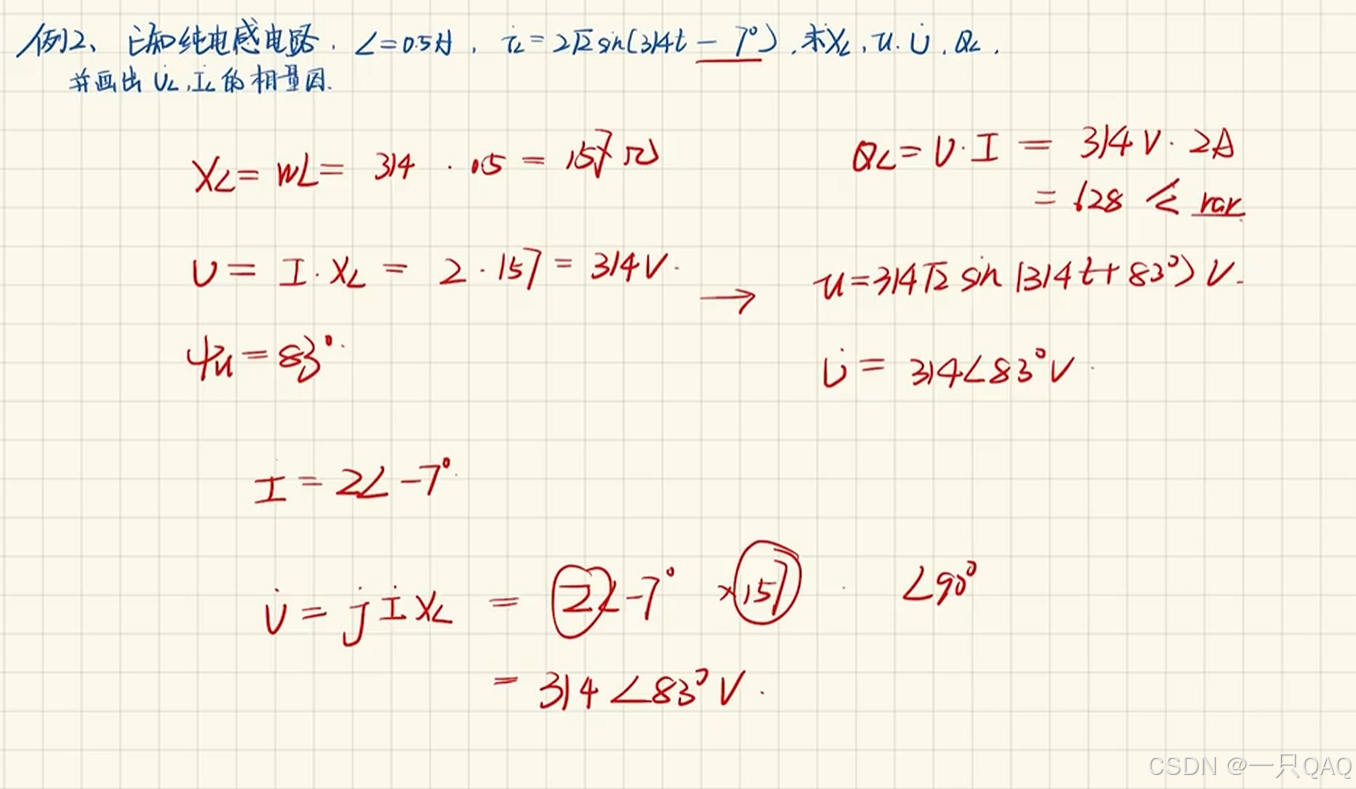 例2、已知纯电感电路，L=0.5H，iL=2√2 sin(314t-7°)，求XL，u，U̇，QL，
并画出 U̇L，İL 的相量图.
XL=wL=314·0.5=157Ω
U=I·XL=2·157=314V.
ψu=83°.
QL=U·I=314V·2A
=628 var
→ u=314√2 sin(314t+83°)V.
U̇=314∠83°V.
İ=2∠-7°.
U̇=jİXL=2∠-7°×157 ∠90°
=314∠83°V.
CSDN @一只QAQ